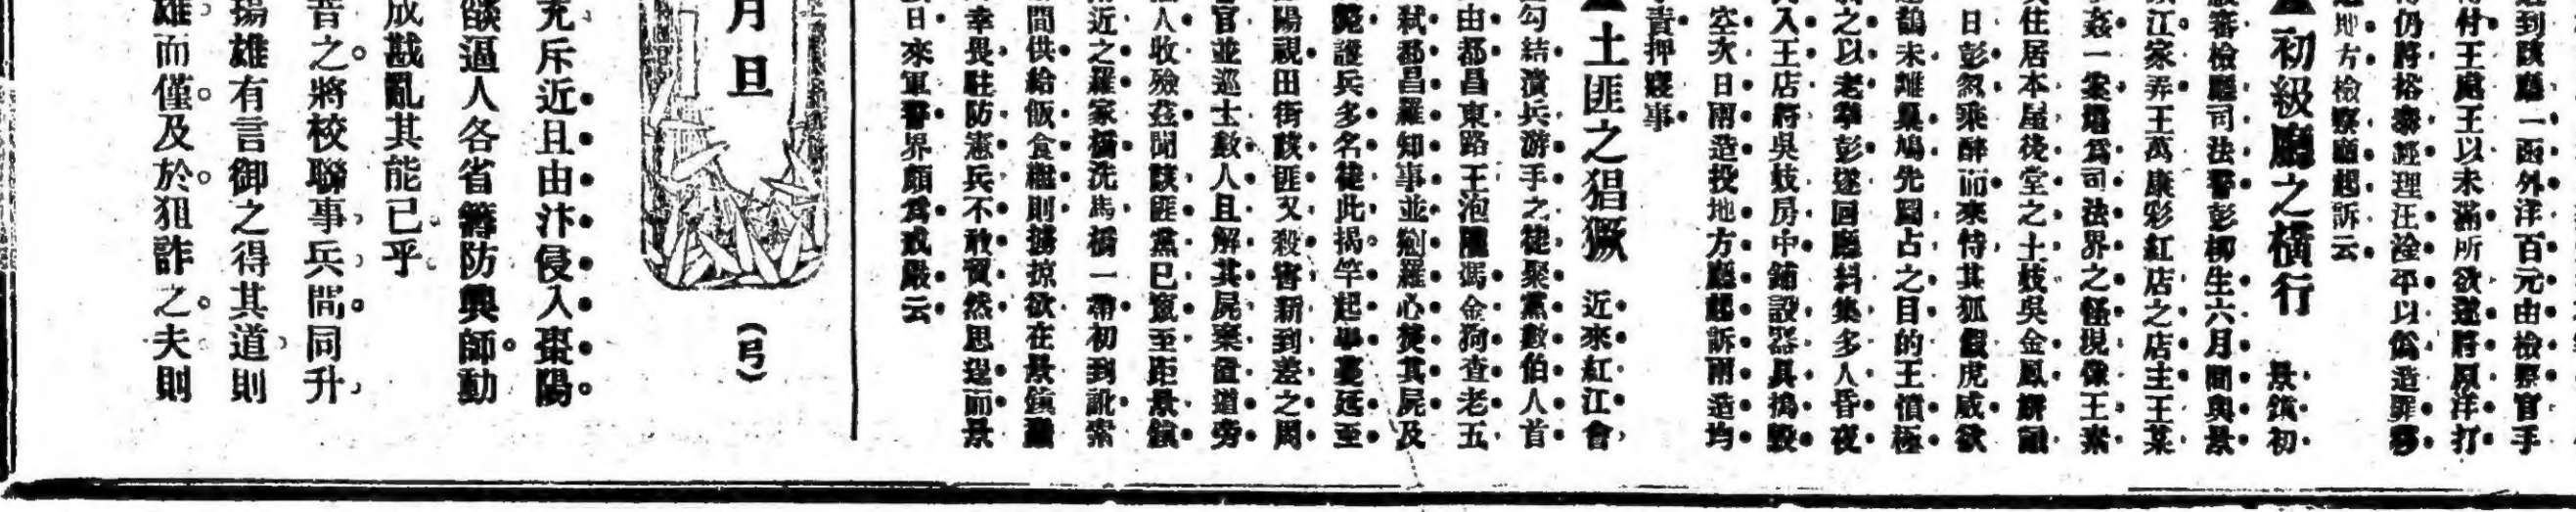 到該廳一函外洋百元由檢察官手
付王處王以未滿所欲遂將原洋打
仍將裕泰經理汪淦平以偽造罪移
地方檢察廳起訴云
初級廳之橫行　景鎮初
審檢廳司法警彭柳生六月間與景
江家弄王萬康彩紅店之店主王某
姦一案堪為司法界之怪現像王素
住居本屋後堂之土妓吳金鳳姘
日彭忽乘醉而來恃其狐假虎威欲
鵲未離巢鳩先圖占之目的王憤極
之以老拳彭遂回廳糾集多人昏夜
入王店將吳妓房中鋪設器具搗毀
空次日兩造投地方廳起訴兩造均
責押寢事
土匪之猖獗　近來紅江會
勾結潰兵游手之徒聚黨數伯人首
由都昌東路王泡馮金狗查老五
弒都昌羅知事並剜羅心撓其屍及
斃護兵多名徒此揭竿起事蔓延至
陽視田街該匪又殺害新到差之周
官並巡士數人且解其屍棄置道旁
人收殮茲聞該匪黨已竄至距景鎮
近之羅家橋洗馬橋一帶初到訛索
間供給飯食繼則擄掠欲在景鎮
幸畏駐防憲兵不敢貿然思逞而景
日來軍警界頗為戒嚴云
月旦
（弓）
充斥近且由汴侵入棗陽
燄逼人各省籌防興師動
成戡亂其能已乎
昔之將校聯事兵間同升
揚雄有言御之得其道則
雄而僅及於狙詐之夫則